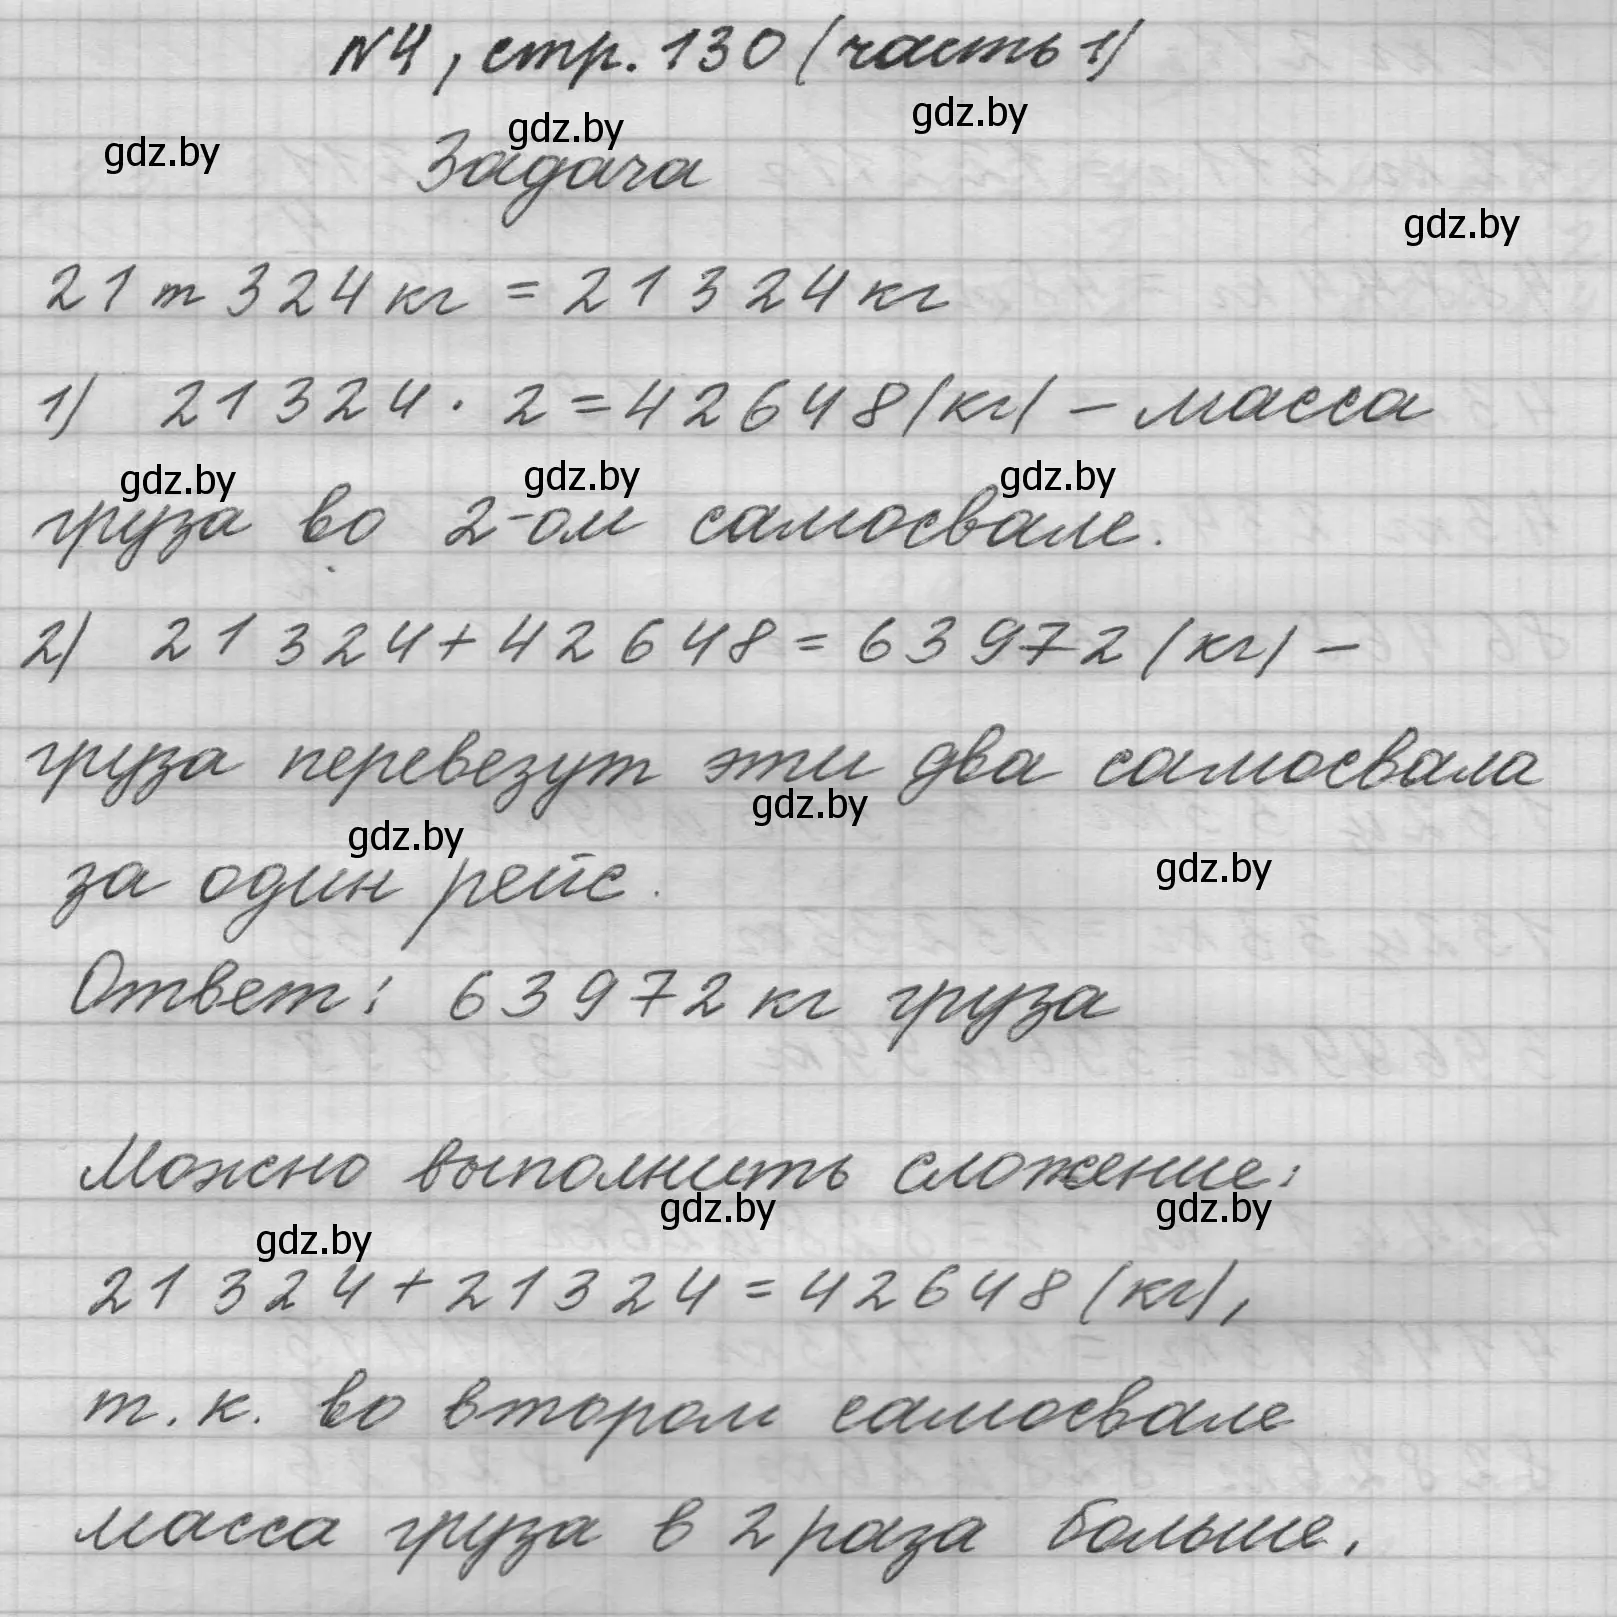 №4, стр. 130 (часть 1)
gdz.by
gdz.by
gdz.by
Задача
gdz.by
21 т 324 кг = 21 324 кг
1) 21 324 · 2 = 42 648 (кг) – масса
gdz.by
gdz.by
gdz.by
груза во 2-ом самосвале.
2) 21 324 + 42 648 = 63 972 (кг) –
груза перевезут эти два самосвала
gdz.by
gdz.by
gdz.by
за один рейс.
Ответ: 63 972 кг груза
Можно выполнить сложение:
gdz.by
gdz.by
gdz.by
21 324 + 21 324 = 42 648 (кг),
т. к. во втором самосвале
масса груза в 2 раза больше.